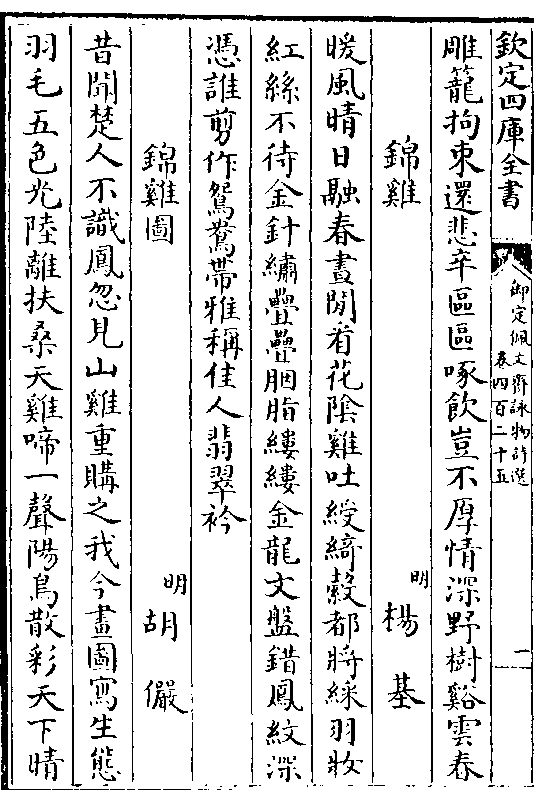 欽定四庫全書
御定佩文齋詠物詩選
卷四百二十五
一
雕籠拘束還悲辛區區啄飲豈不厚情深野樹谿雲春
錦雞
明
楊基
暖風晴日融春晝閒看花陰雞吐綬綺縠都將綵羽妝
紅絲不待金針繡疊疊胭脂縷縷金龍文盤錯鳳紋深
憑誰剪作鴛鴦帶雅稱佳人翡翠衿
錦雞圖
明
胡儼
昔聞楚人不識鳳忽見山雞重購之我今畫圖寫生態
羽毛五色光陸離扶桑天雞啼一聲陽烏散彩天下晴